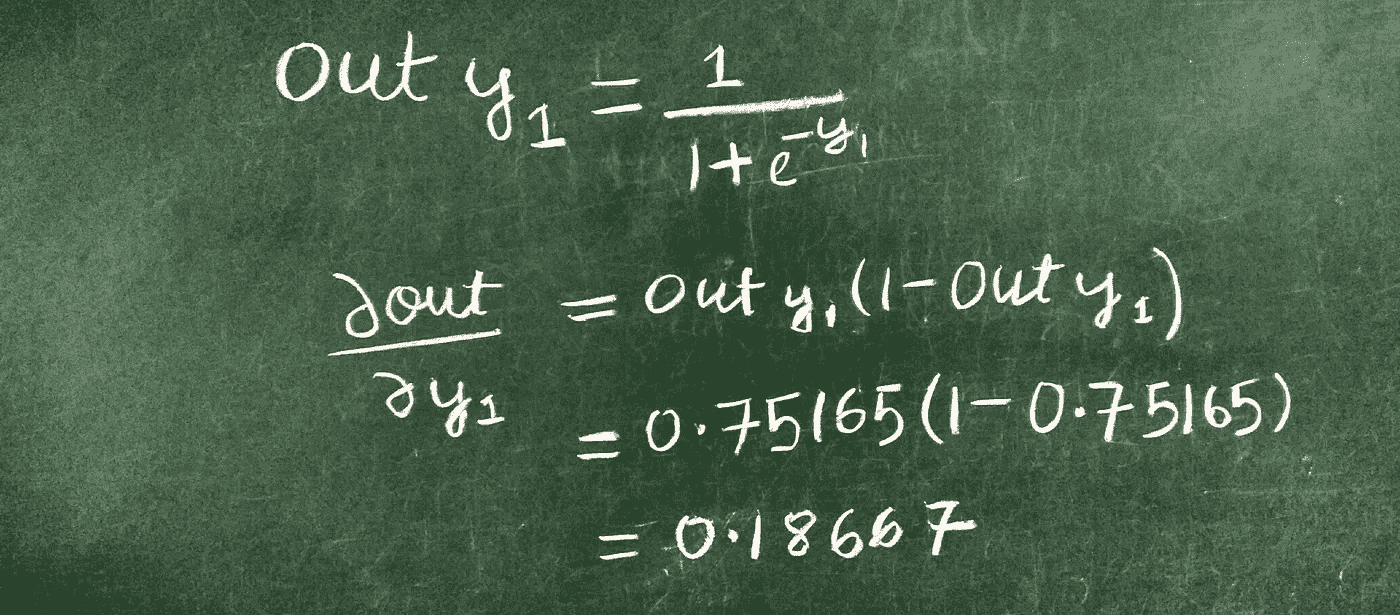 Out y₁ = 1 / 1+e^-y₁
∂out / ∂y₁ = Out y₁ (1 - Out y₁)
= 0.75165 (1 - 0.75165)
= 0.18667